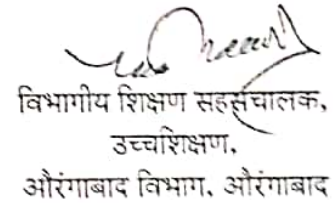 विभागीय शिक्षण सहसंचालक,
उच्चशिक्षण,
औरंगाबाद विभाग, औरंगाबाद